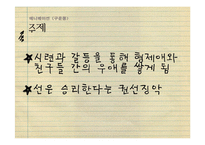 애니메이션 (구운몽)
주제
시련과 갈등을 통해 형제애와
친구들 간의 우애를 쌓게 됨
선은 승리한다는 권선징악